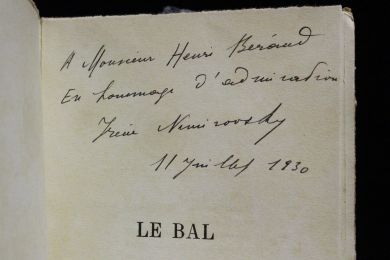 A Monsieur Henri Béraud
En hommage d'admiration
Irène Nemirovsky
11 Juillet 1930
LE BAL